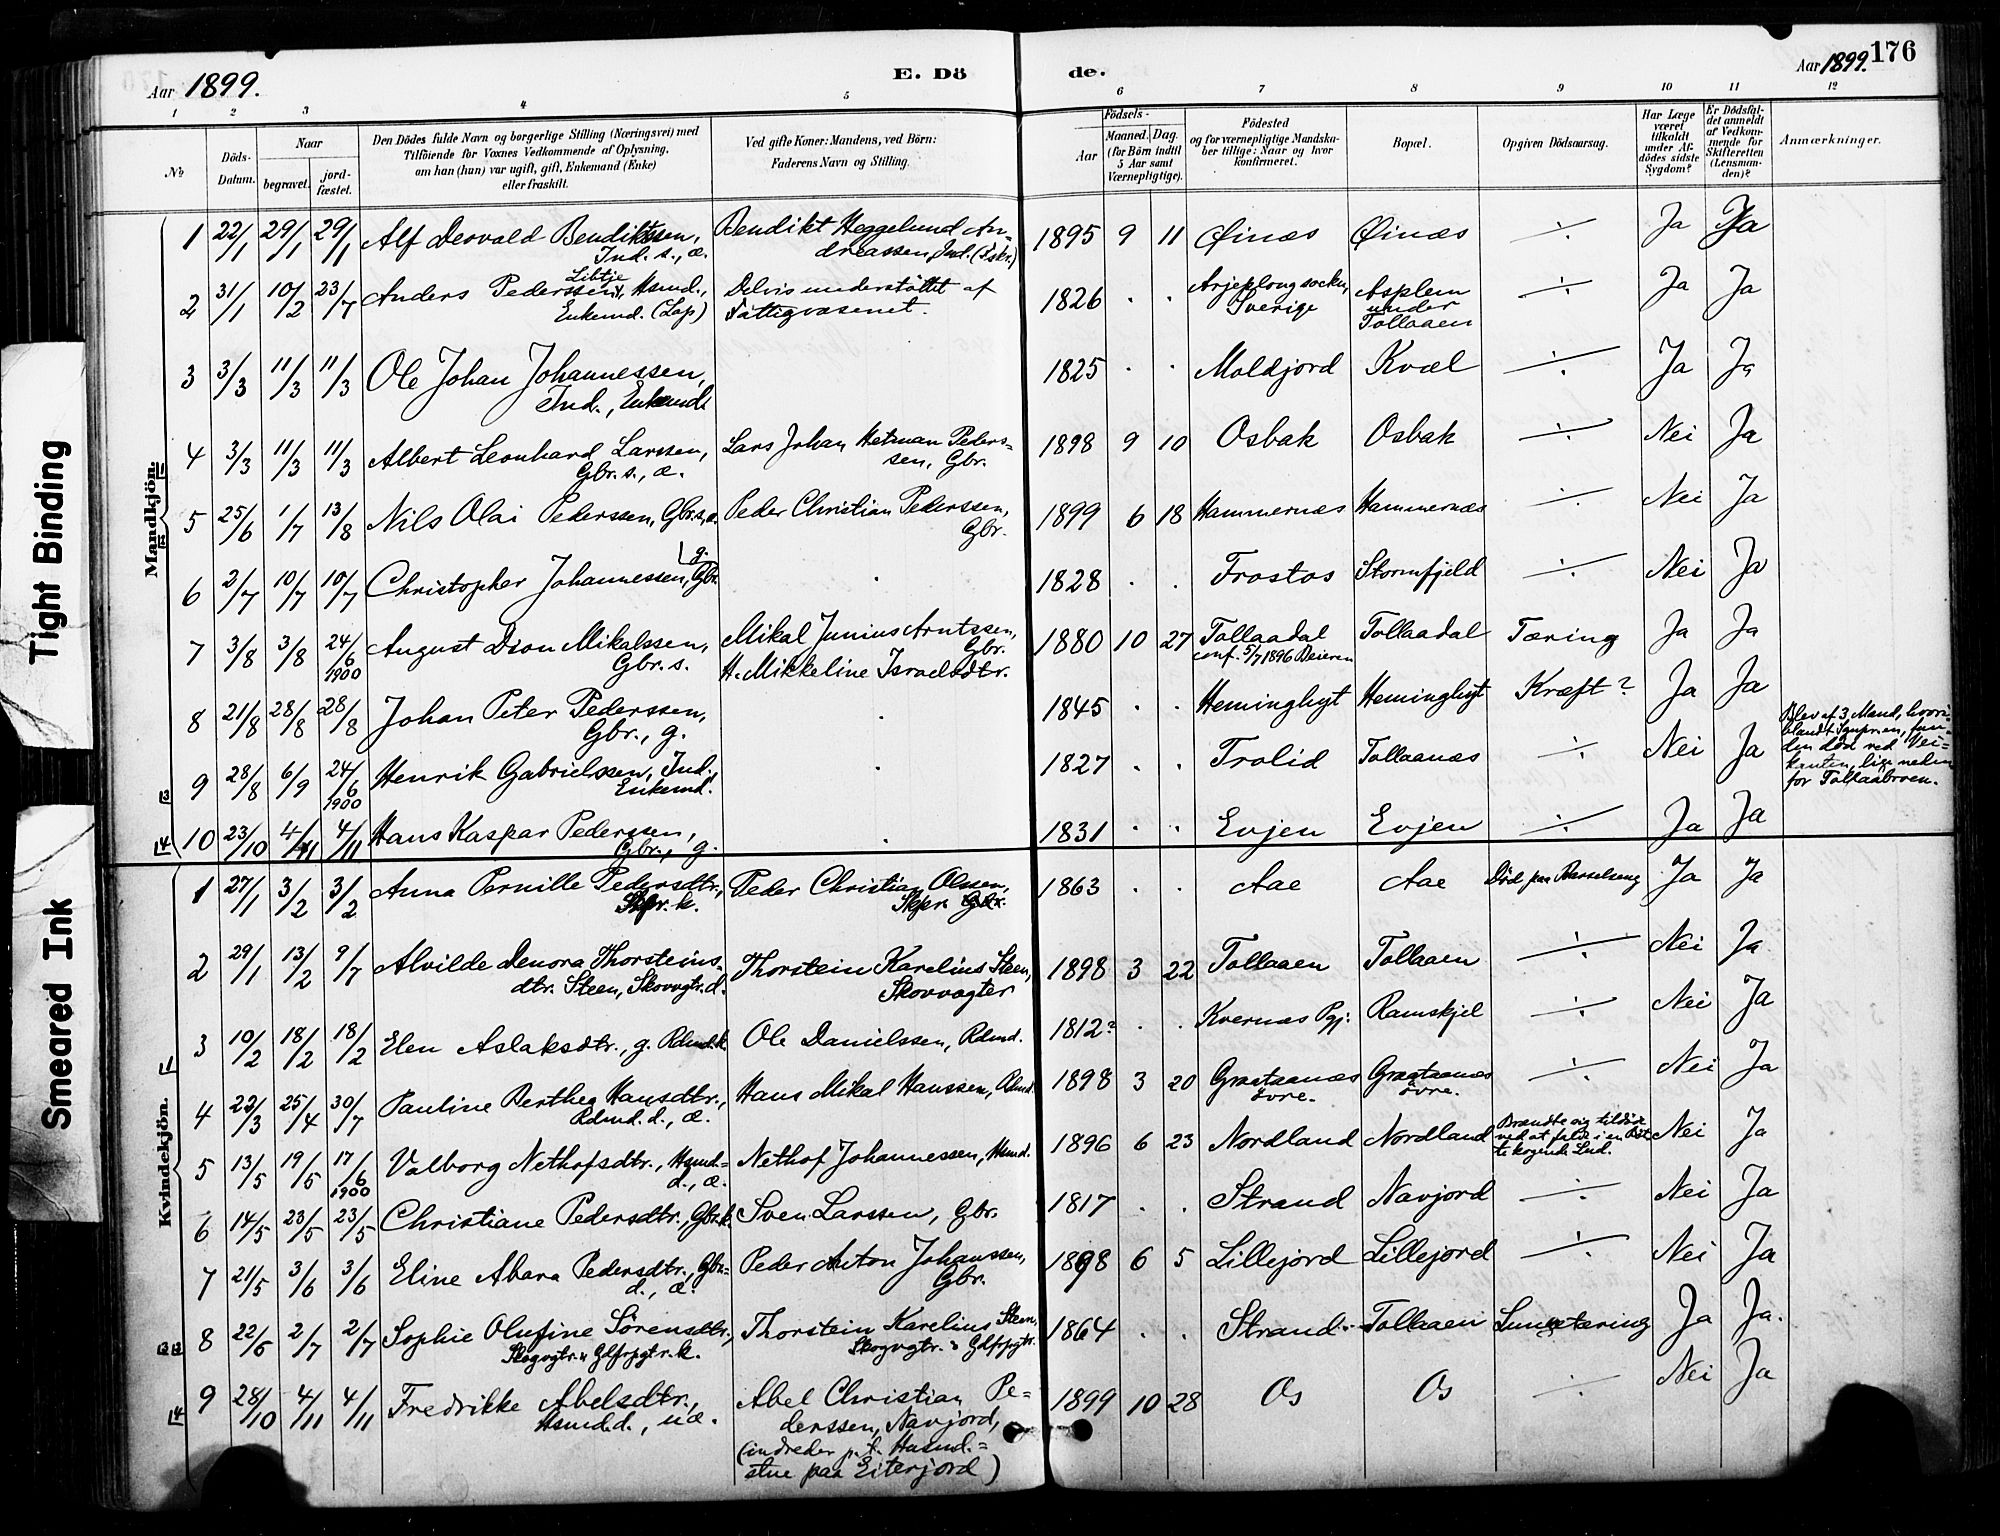 Aar 1899. E. Dö de. Aar 1899. 176
1 2 3 4 5 6 7 8 9 10 11 12
№ Döds-Datum. Naar begravet. jord-fæstet.
Den Dödes fulde Navn og borgerlige Stilling (Næringsvei) med
Tilföiende for Voxnes Vedkommende af Oplysning,
om han (hun) var ugift, gift, Enkemand (Enke)
eller fraskilt.
Ved gifte Koner: Mandens, ved Börn:
Faderens Navn og Stilling.
Födsels-
Aar Maaned. Dag.
(for Börn indtil
5 Aar samt
Værnepligtige).
Födested
og for værnepligtige Mandska-
ber tillige: Naar og hvor
konfirmeret.
Bopæl.
Opgiven Dödsaarsag.
Har Læge
været
tilkaldt
under Af-
dödes sidste
Sygdom?
Er Dödsfal-
det anmeldt
af Vedkom-
mende for
Skifteretten
(Lensman-
den)?
Anmærkninger.
Mandkjön.
1 22/1 29/1 29/1 Alf Deovald Bendiktssen, Bendikt Heggelund An- 1895 9 11 Øinæs Øinæs ÷ Ja Ja
Ind. s., æ. dreassen, Ind. (Fskr.)
2 31/1 10/2 23/7 Anders Pederssen Libtje, Hsmd., Delvis understøttet af 1826 . . Arjeplougsocken, Asplem ÷ Ja Ja
Enkemd. (Lap) Fattigvæsenet. Sverige under
Tollaaen
3 3/3 11/3 11/3 Ole Johan Johannessen, 1825 . . Moldjord Kvæl ÷ Ja Ja
Ind., Enkemd.
4 3/3 11/3 11/3 Albert Leonhard Larssen, Lars Johan Hetman Peders- 1898 9 10 Osbak Osbak ÷ Nei Ja
Gbr. s., æ. sen, Gbr.
5 25/6 1/7 13/8 Nils Olai Pederssen, Gbr.s., æ. Peder Christian Pederssen, 1899 6 18 Hammernæs Hammernæs ÷ Nei Ja
Gbr.
6 2/7 10/7 10/7 Christopher Johannessen, Gbr. g. . 1828 . . Frostos Stormfjeld ÷ Nei Ja
7 3/8 3/8 24/6 1900 August Dion Mikalssen, Mikal Junius Arntssen, 1880 10 27 Tollaadal Tollaadal Tæring Ja Ja
Gbr. s. Gbr. conf. 5/7 1896 Beieren
H. Mikkeline Israelsdtr.
8 21/8 28/8 28/8 Johan Peter Pederssen, . 1845 . . Heminghyt Heminghyt Kræft? Ja Ja
Gbr., g.
9 28/8 6/9 24/6 1900 Henrik Gabrielssen, Ind., . 1827 . . Trolid Tollaanæs ÷ Nei Ja
Enkemd.
Blev af 3 Mand, hvori-
blandt Sgnprsten, fun-
den död ved Vei-
kanten, lige neden
for Tollaabroen.
10 23/10 4/11 4/11 Hans Kaspar Pederssen, . 1831 . . Evjen Evjen ÷ Ja Ja
Gbr., g.
Kvindekjön.
1 27/1 3/2 3/2 Anna Pernille Pedersdtr., Peder Christian Olssen, 1863 . . Aae Aae Död paa Barselseng Ja Ja
Skpr. k. Skpr. Gbr.
2 29/1 13/2 9/7 Alvilde Denora Thorsteins- Thorstein Karelius Steen, 1898 3 22 Tollaaen Tollaaen ÷ Nei Ja
dtr. Steen, Skovvgtr. d. Skovvogter
3 10/2 18/2 18/2 Elen Aslaksdtr., g. Rdmd. k. Ole Danielssen, Rdmd. 1812? . . Kvernæs Pgj. Ramskjel ÷ Nei Ja
4 23/3 25/4 30/7 Pauline Berthea Hansdtr., Hans Mikal Hanssen, Rdmd. 1898 3 20 Graataanæs Graataanæs ÷ Nei Ja
Rdmd. d., æ. övre. övre.
5 13/5 19/5 17/6 1900 Valborg Nethofsdtr., Hsmd.- Nethof Johannessen, Hsmd. 1896 6 23 Nordland Nordland Brændte sig tildöde Nei Ja
d., æ. ved at falde i en Böt-
te kogende Lud.
6 14/5 23/5 23/5 Christiane Pedersdtr., Gbr. k. Sven Larssen, Gbr. 1817 . . Strand Navjord ÷ Nei Ja
7 21/5 3/6 3/6 Eline Abara Pedersdtr., Gbr.- Peder Anton Johanssen, 1898 6 5 Lillejord Lillejord ÷ Nei Ja
d., æ. Gbr.
8 22/6 2/7 2/7 Sophie Olufine Sörensdtr., Thorstein Karelius Steen, 1864 . . Strand. Tollaaen Lungetæring Ja Ja.
Skogvgtr. & Gdfrpgtr. k. Skogvgtr. & Gdfrpgtr.
9 28/10 4/11 4/11 Fredrikke Abelsdtr., Abel Christian Pe- 1899 10 28 Os Os ÷ Nei Ja
Hsmd. d., uæ. derssen, Navjord,
(indreder p. t. Husmd.-
stue paa Eiterjord)
Tight Binding
Smeared Ink